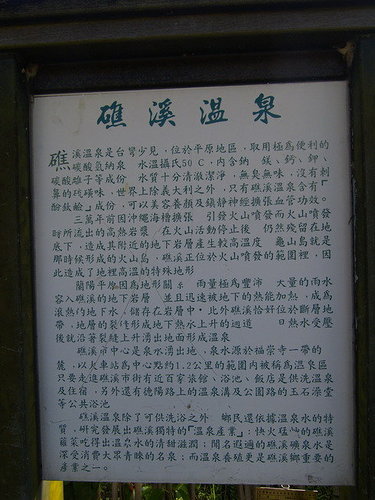 礁溪溫泉
礁溪溫泉是台灣少見，位於平原地區，取用極為便利的
碳酸氫鈉泉 水溫攝氏50℃，内含鈉 鎂、鈣、鉀、
碳酸離子等成份 水質十分清澈潔淨，無臭無味，沒有刺
鼻的硫磺味，世界上除義大利之外，只有礁溪溫泉含有「
酚鈸鹼」成份，可以美容養顏及鎮靜神經擴張血管功效。
三萬年前因沖繩海槽擴張 引發火山噴發而火山噴發
時所流出的高熱岩漿，在火山活動停止後 仍然殘留在地
底下，造成其附近的地下岩層產生較高溫度 龜山島就是
那時候形成的火山島，礁溪正位於火山噴發的範圍裡，因
此造成了地裡高溫的特殊地形
蘭陽平原因為地形關係 雨量極為豐沛 大量的雨水
容入礁溪的地下岩層 並且迅速被地下的熱能加熱，成為
滾熱的地下水，儲存在岩層中，此外礁溪恰好位於斷層地
帶，地層的裂縫形成地下熱水上升的迴道 日熱水受壓
後就沿著裂縫上升湧出地面形成溫泉
礁溪市中心是泉水湧出地，泉水源於福崇寺一帶的
麓，以火車站為中心點約1.2公里的範圍内被稱為溫泉區
只要走進礁溪市街有近百家旅館、浴池、飯店是供洗溫泉
及住宿，另外還有德陽路上的溫泉溝及公園路的玉石澡堂
等公共浴池
礁溪溫泉除了可供洗浴之外 鄉民還依據溫泉水的特
質，研究發展出礁溪獨特的「溫泉產業」：快火猛炒的礁溪
蕹菜吃得出溫泉水的清甜滋潤；聞名遐邇的礁溪礦泉水是
深受消費大眾青睞的名泉；而溫泉養殖更是礁溪鄉重要的
產業之一。